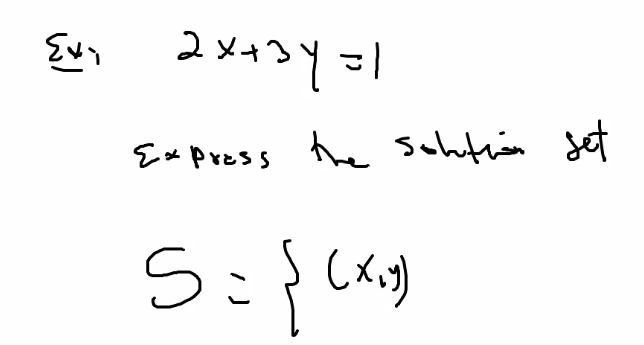 Ex: 2x+3y=1
Express the solution set
S = { (x,y)